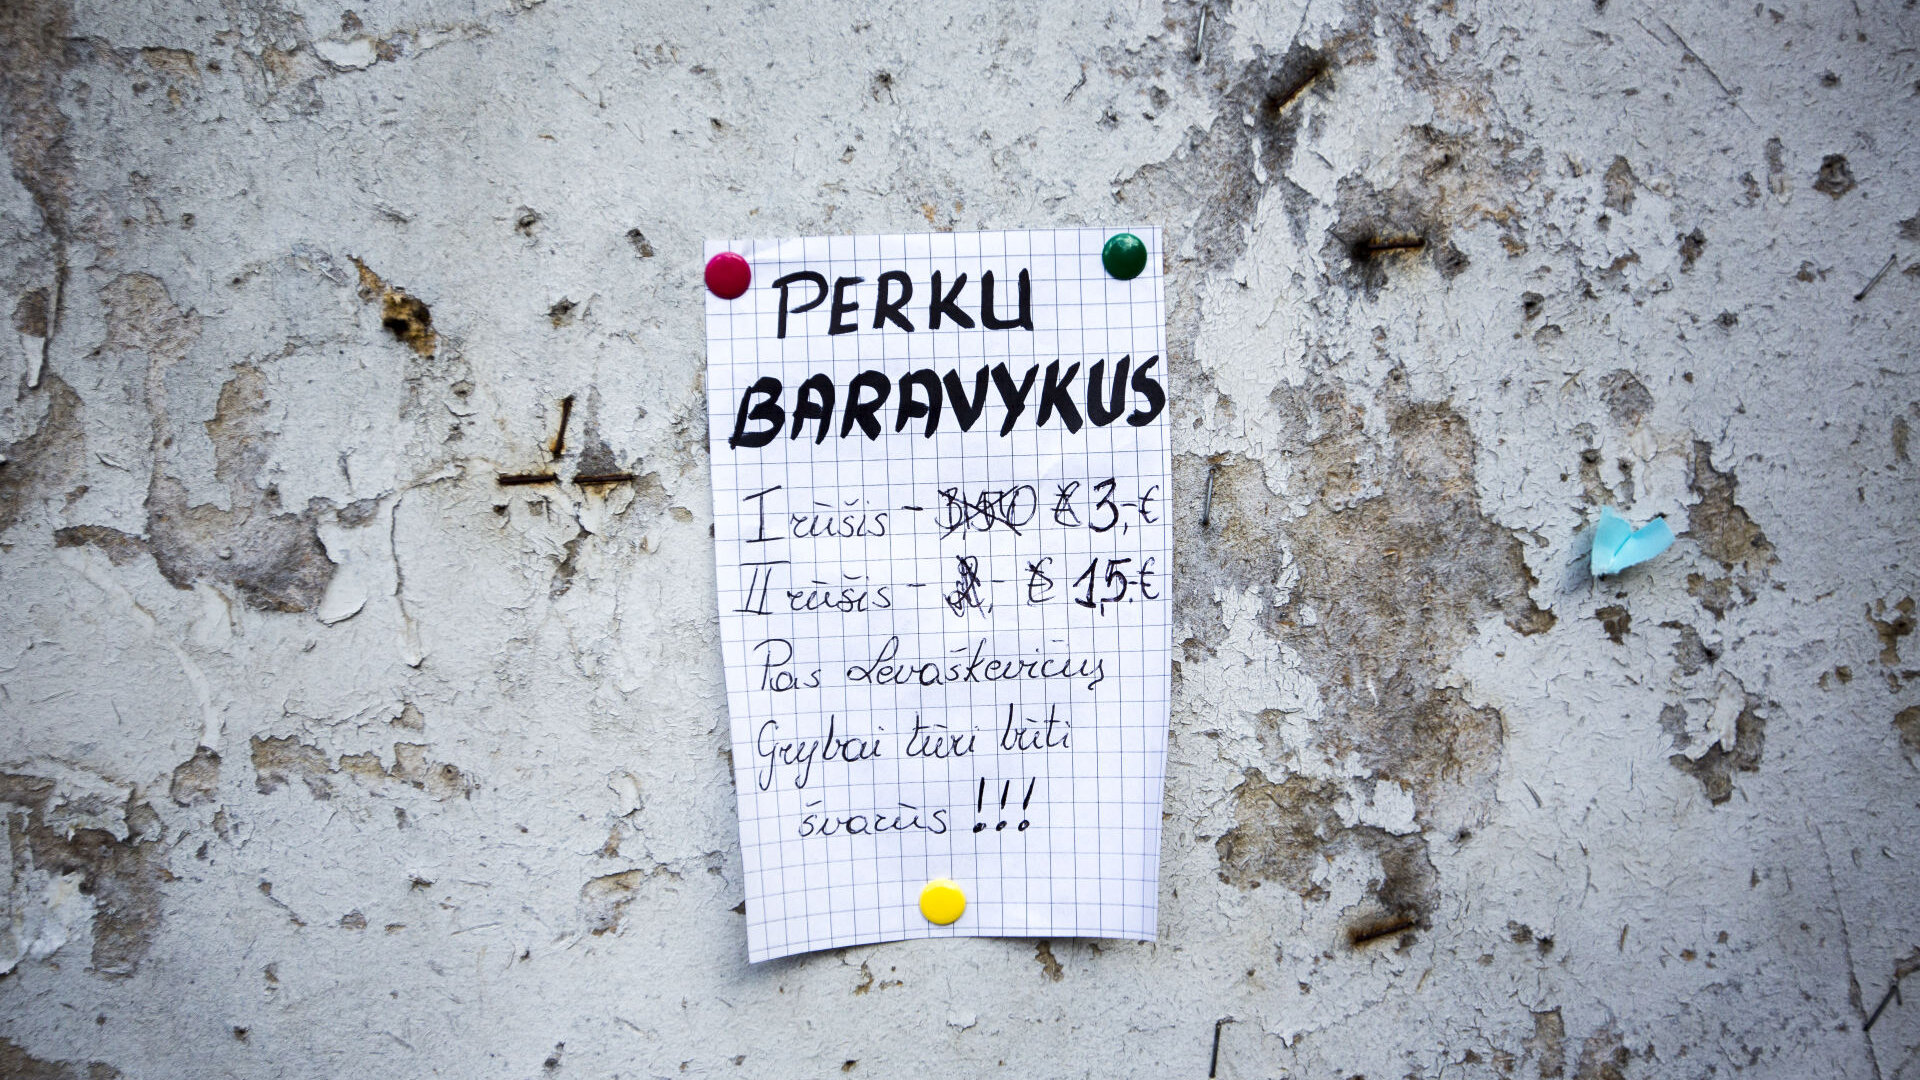 PERKU
BARAVYKUS
I rūšis - 3,50 € 3,-€
II rūšis - 2,- € 1,5.€
Pas Levaškevičių
Grybai turi būti
švarūs !!!